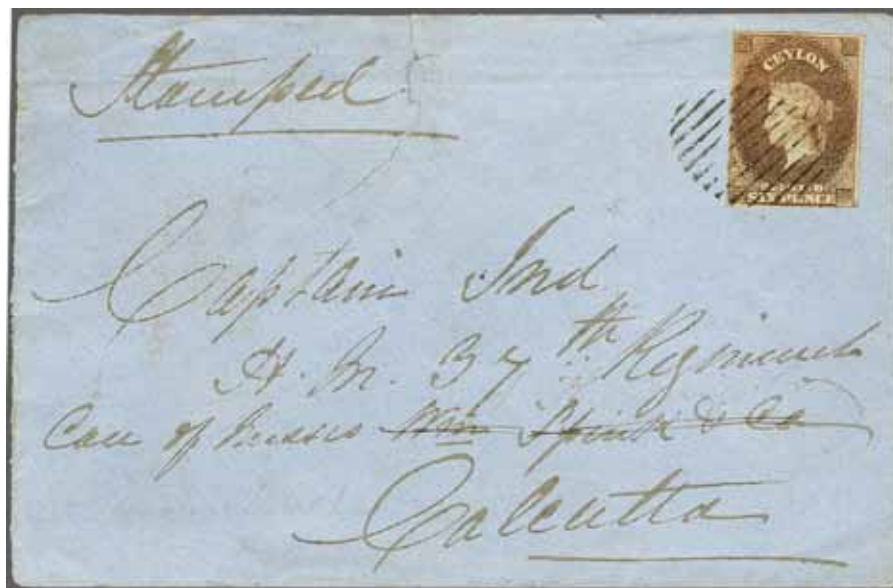 Stamped
CEYLON
POSTAGE
SIX PENCE
Captain Ind
H. M. 37th Regiment
Care of Messrs Wm Spink & Co
Calcutta